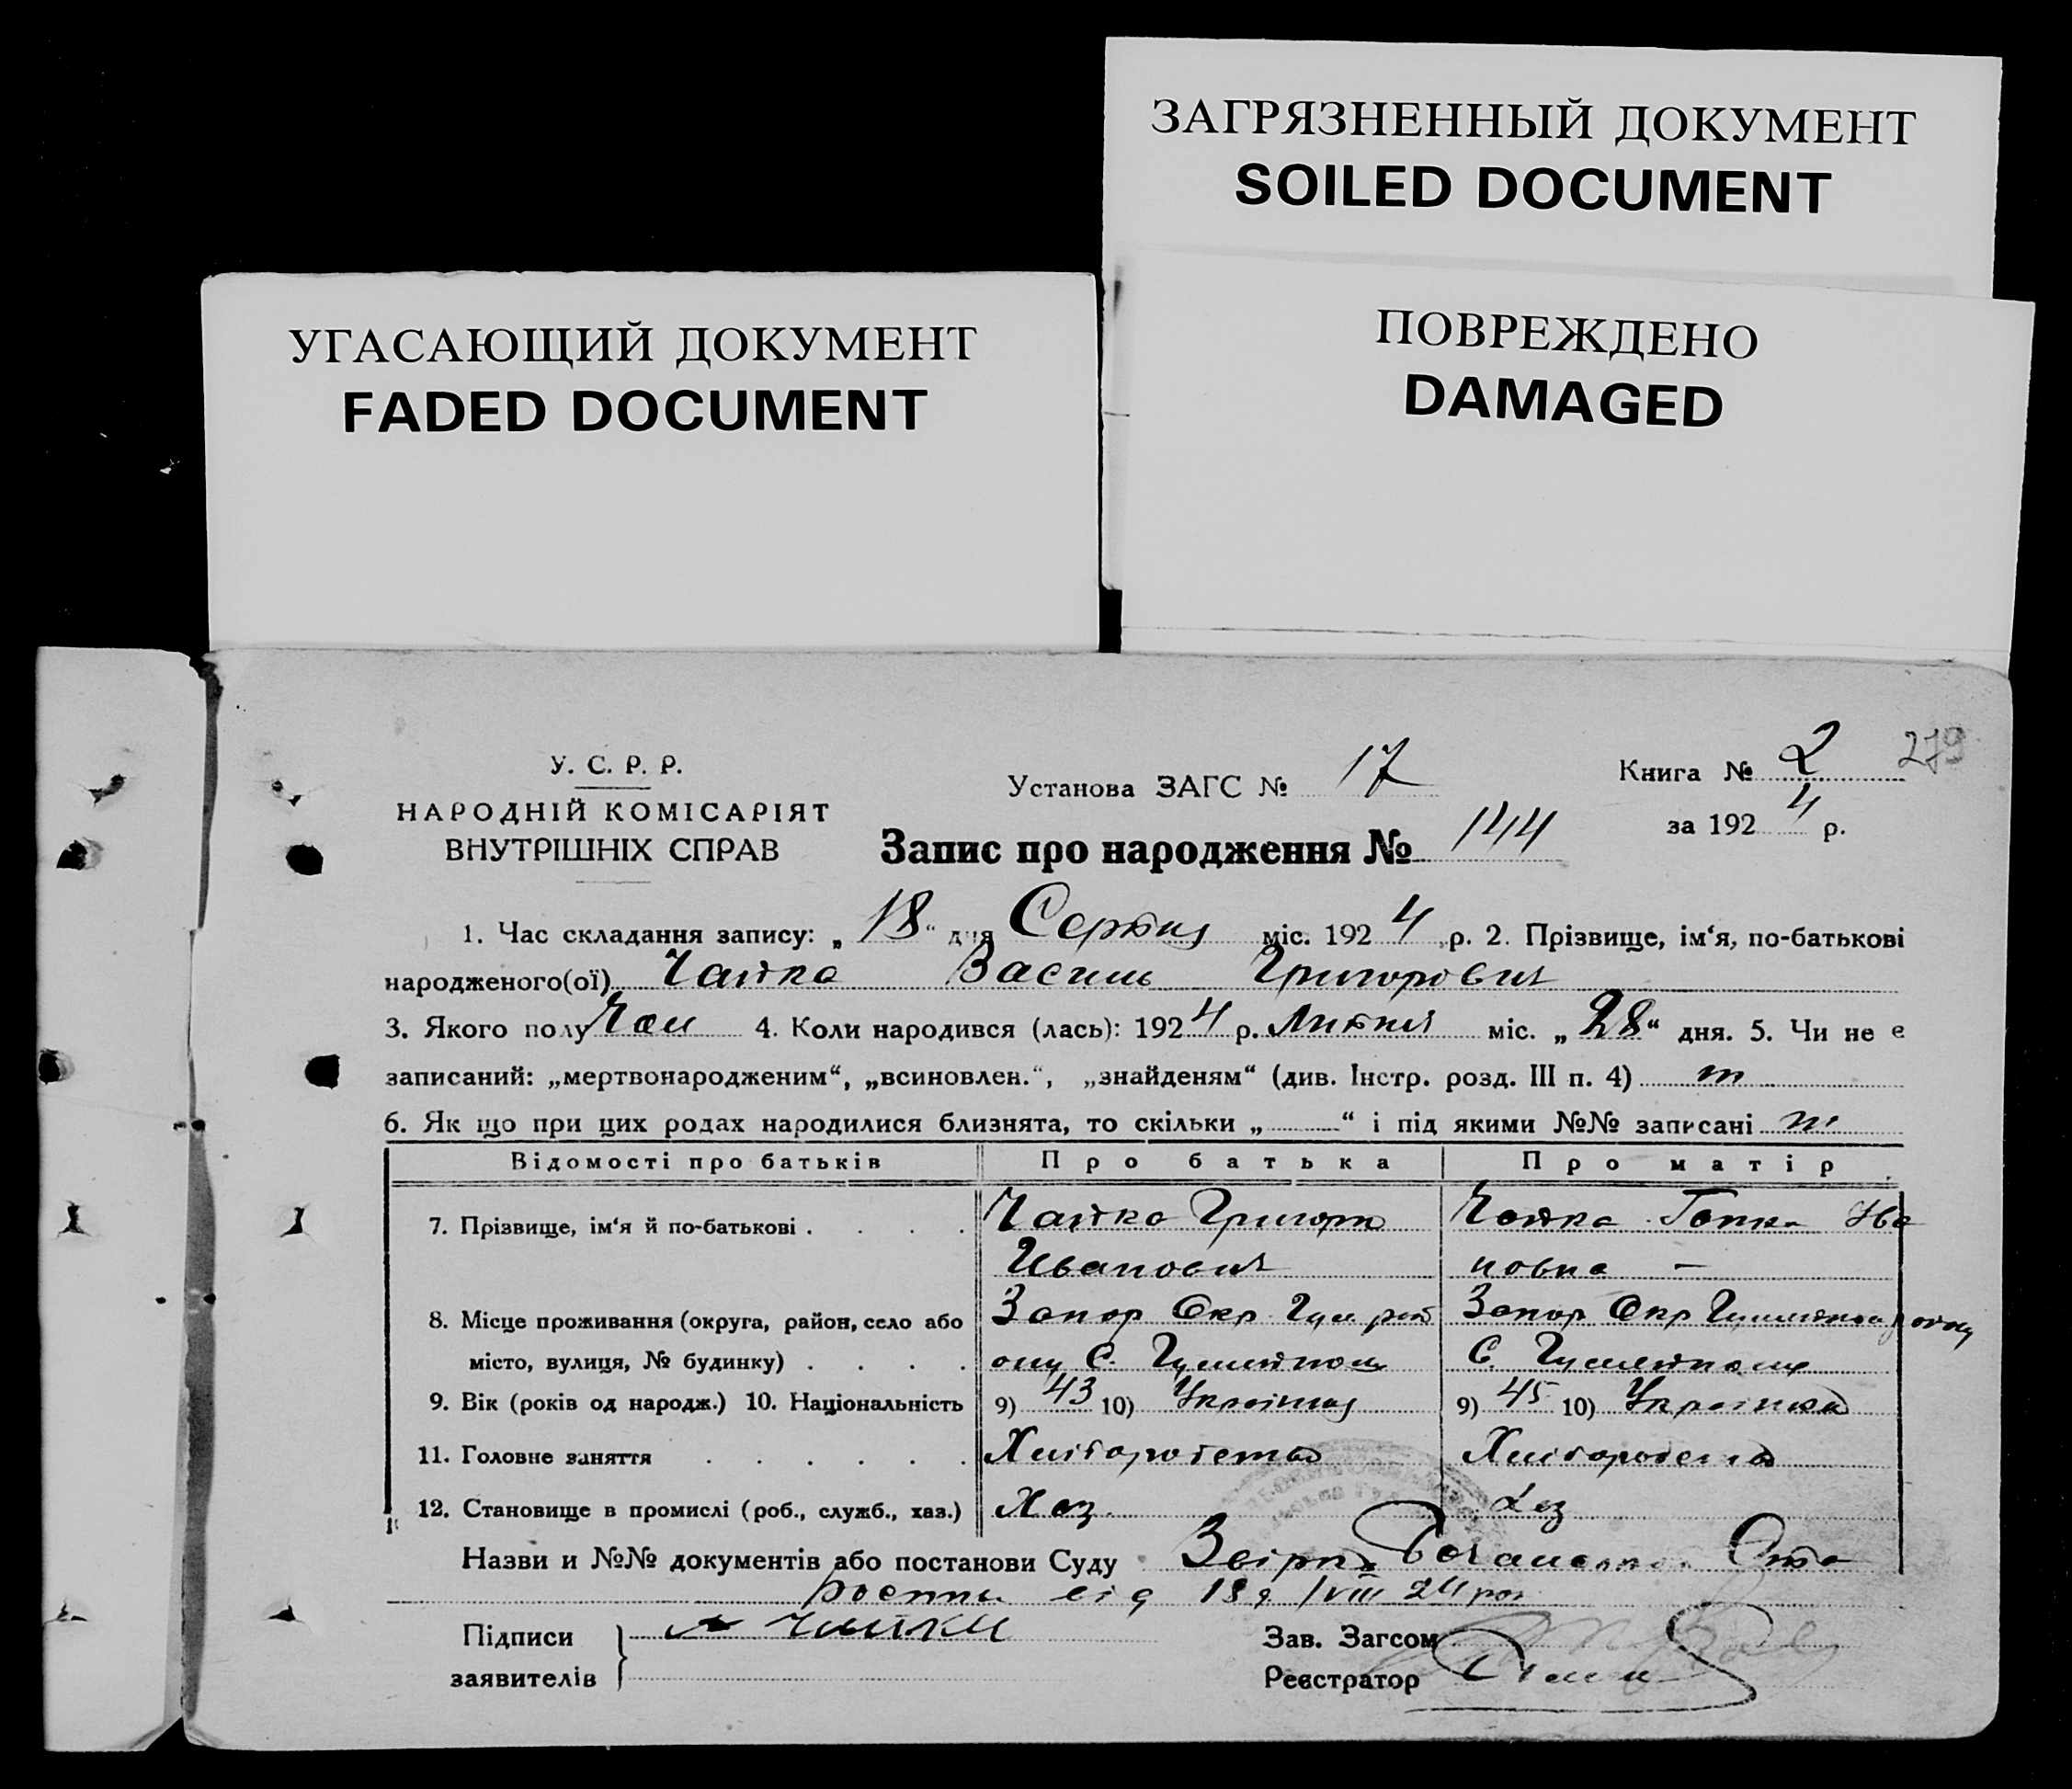 ЗАГРЯЗНЕННЫЙ ДОКУМЕНТ
SOILED DOCUMENT
УГАСАЮЩИЙ ДОКУМЕНТ
FADED DOCUMENT
ПОВРЕЖДЕНО
DAMAGED
У. С. Р. Р.
НАРОДНІЙ КОМІСАРІЯТ
ВНУТРІШНІХ СПРАВ
Установа ЗАГС № 17
Книга № 2 279
за 1924 р.
Запис про народження № 144
1. Час складання запису: „18“ дня Серпня міс. 1924 р. 2. Прізвище, ім‘я, по-батькові
народженого(ої) Чайка Василь Григорович
3. Якого полу Чол 4. Коли народився (лась): 1924 р. Липня міс. „28“ дня. 5. Чи не є
записаний: „мертвонародженим“, „всиновлен.“, „знайденям“ (див. Інстр. розд. III п. 4)
6. Як що при цих родах народилися близнята, то скільки „ “ і під якими №№ записані
Відомості про батьків Про батька Про матір
7. Прізвище, ім‘я й по-батькові Чайка Григорій Чайка Гапка Ива
Иванович новна —
8. Місце проживання (округа, район, село або Запор Окр Гуля рай Запор Окр
місто, вулиця, № будинку) С. С.
9. Вік (років од народж.) 10. Національність 9) 43 10) 9) 45 10) Українка
11. Головне заняття Хліборобство Хліборобство
12. Становище в промислі (роб., служб., хаз.) Хаз. Хаз
Назви и №№ документів або постанови Суду
від 18 VIII 24 рок
Підписи Чайка
заявителів
Зав. Загсом
Реєстратор